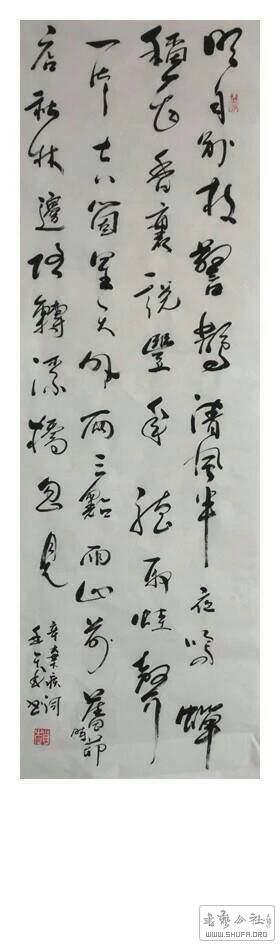 明月别枝驚鵲清風半夜鳴蟬
稻花香裏説豐年聽取蛙聲
一片七八箇星天外兩三點雨山前舊時茆
店社林邊路轉溪橋忽見
辛棄疾詞
书艺公社
WWW.SHUFA.ORG